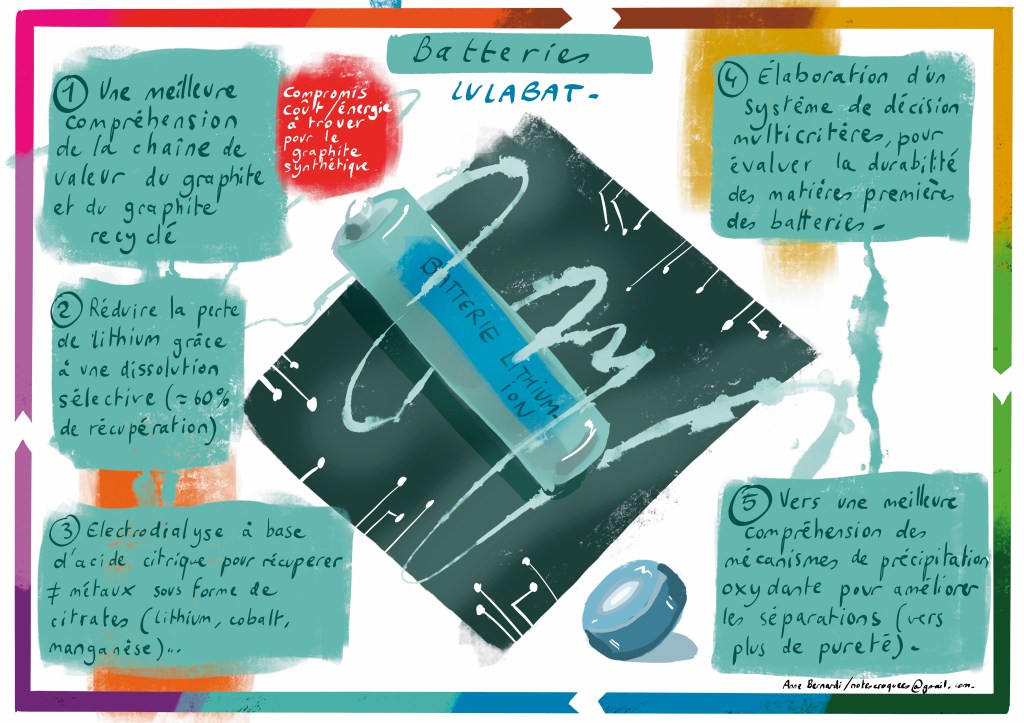 Batteries
LULABAT-
1 Une meilleure
compréhension
de la chaîne de
valeur du graphite
et du graphite
recyclé
Compromis
coût/énergie
à trouver
pour le
graphite
synthétique
2 Réduire la perte
de lithium grâce
à une dissolution
sélective (≈60%
de récupération)
3 Electrodialyse à base
d'acide citrique pour récupérer
≠ métaux sous forme de
citrates (lithium, cobalt,
manganèse)...
BATTERIE LITHIUM-
ION
4 Élaboration d'un
système de décision
multicritères, pour
évaluer la durabilité
des matières premières
des batteries.
5 Vers une meilleure
compréhension des
mécanismes de précipitation
oxydante pour améliorer
les séparations (vers
plus de pureté).
Anne Bernardi/notescroquees@gmail.com.